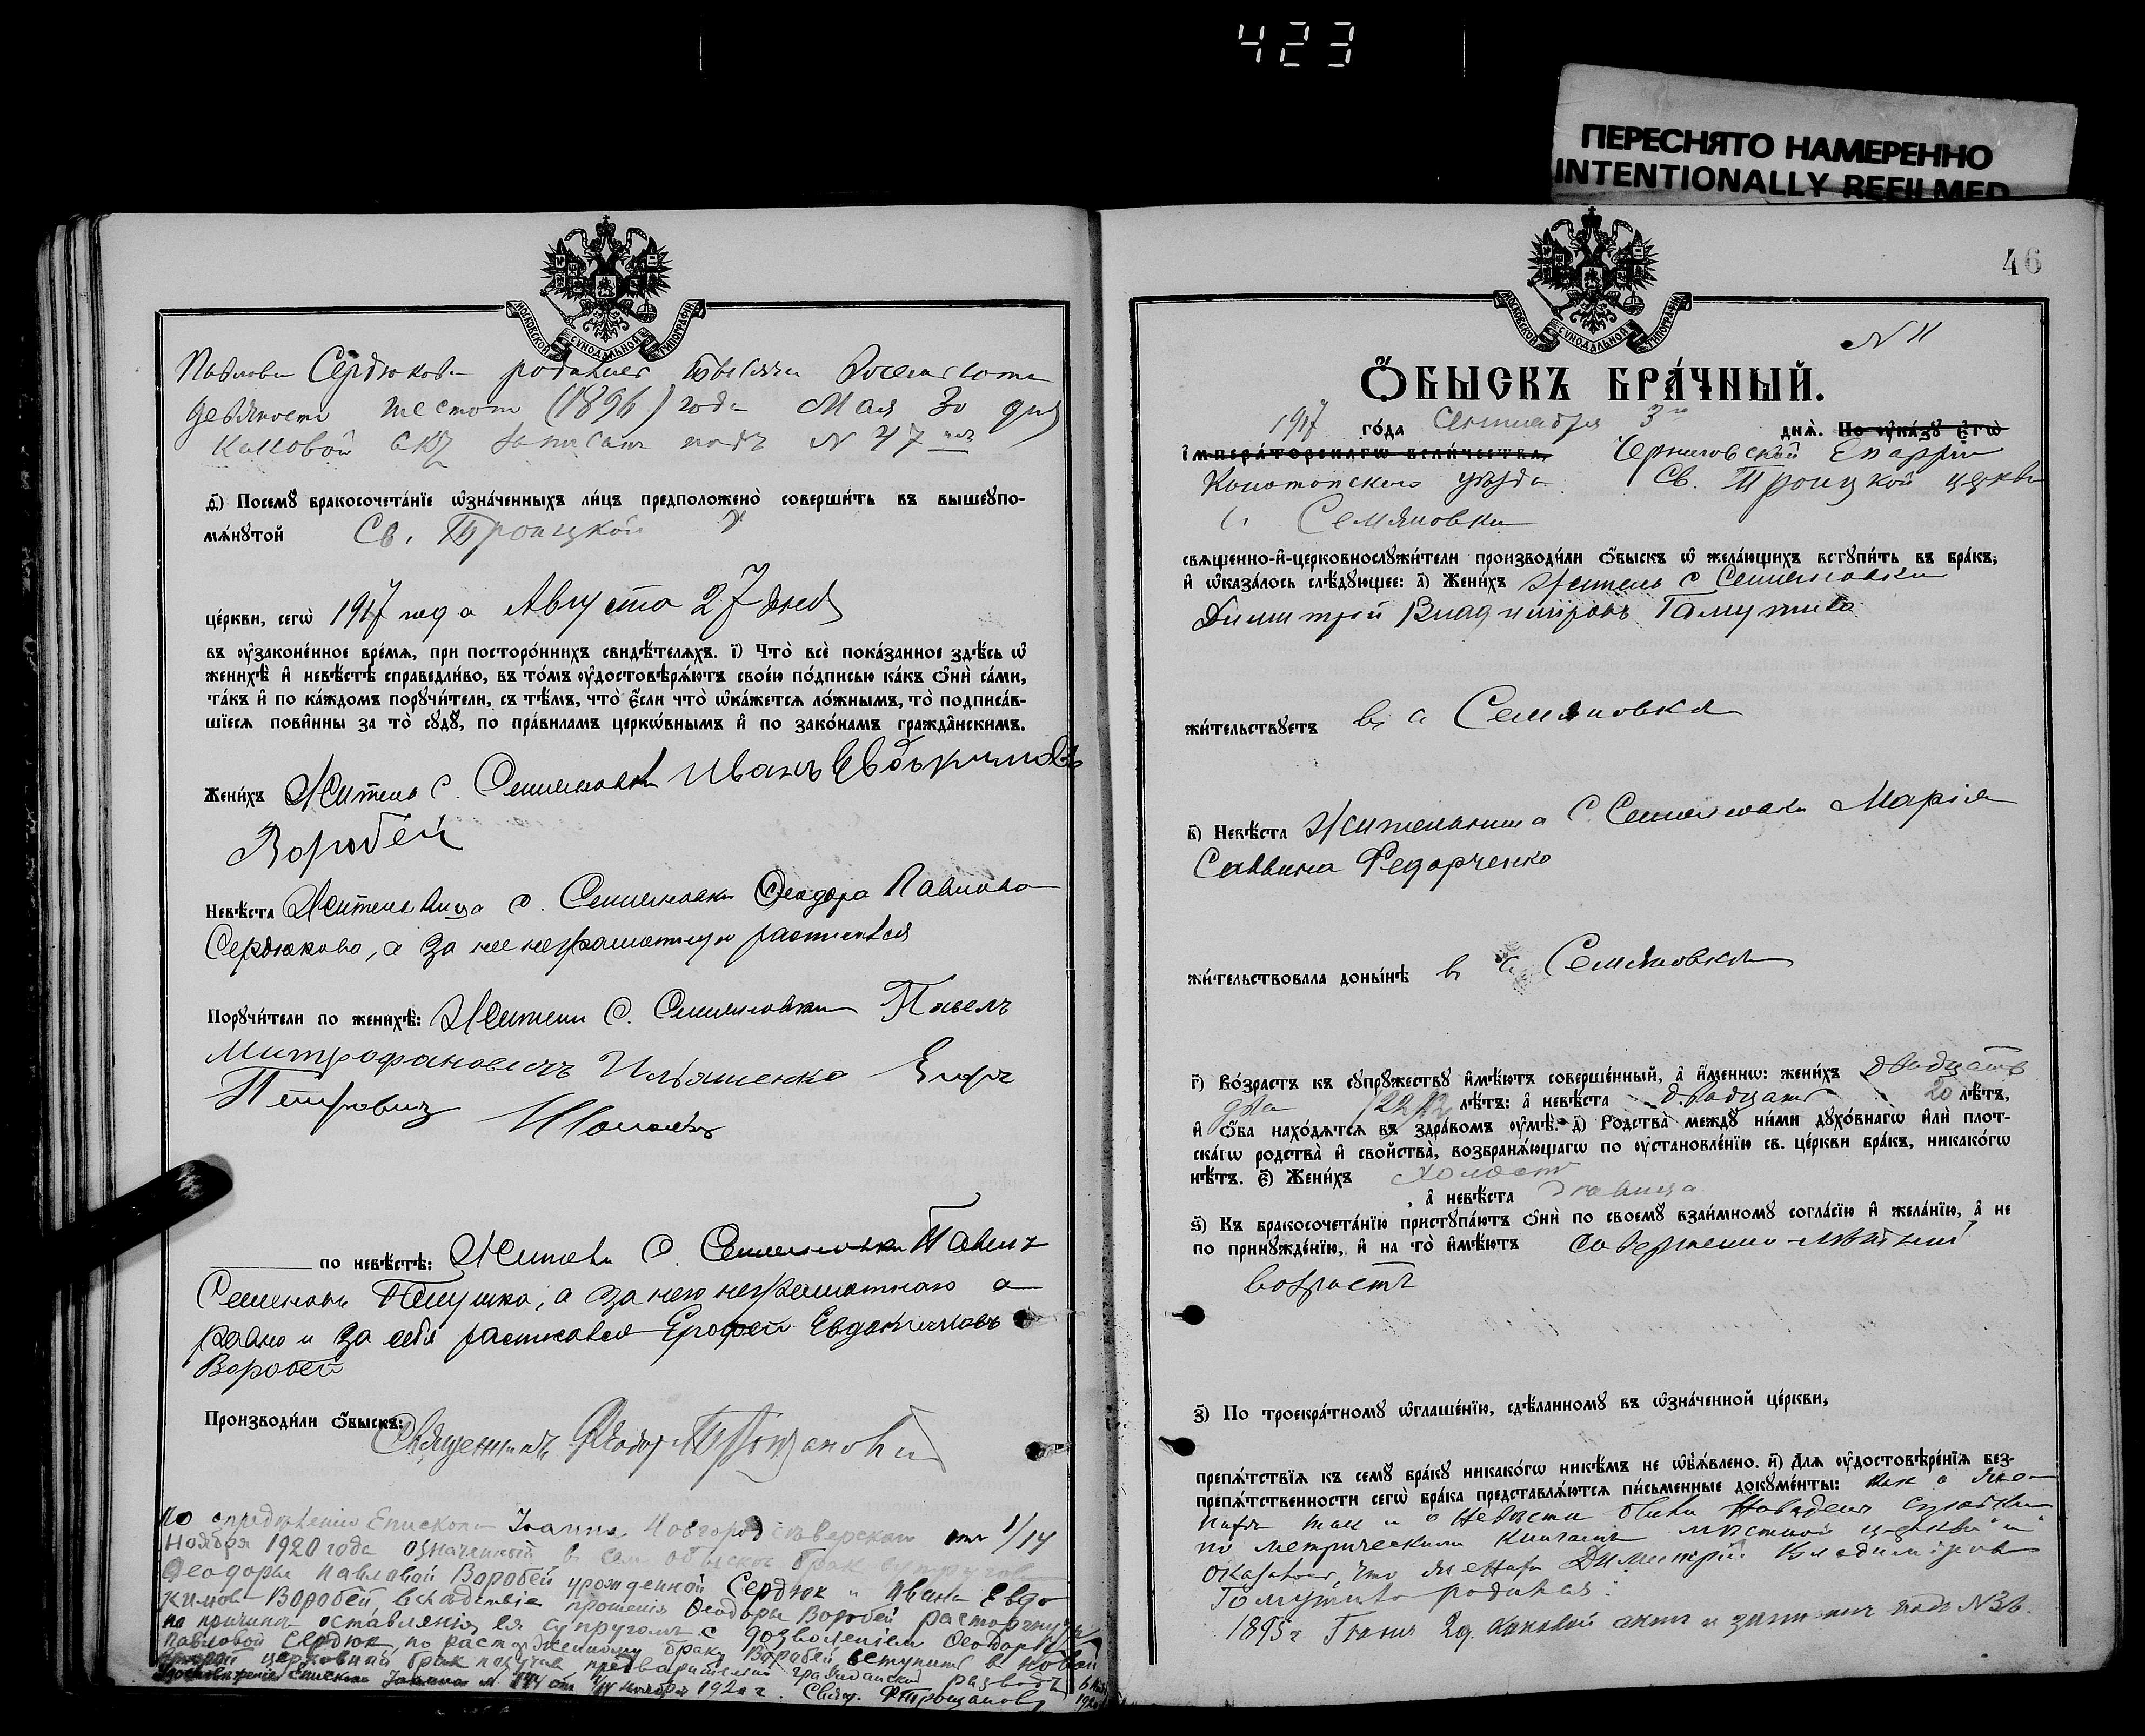 423
ПЕРЕСНЯТО НАМЕРЕННО
INTENTIONALLY REFILMED
МОСКОВСКОЙ СѴНОДАЛЬНОЙ ТИПОГРАФІИ
Павлова Сердюкова родилась тысяча восемьсотъ
девяносто шестого (1896) года Мая 30 дня
каковой актъ записанъ подъ N 47
д҃) Посемꙋ бракосочетанїе ѡзначенныхъ лицъ предположено совершить въ вышеꙋпо-
мѧнꙋтой Св. Троицкой
церкви, сегѡ 1917 года Августа 27 дня
въ ᲂуказаконенное времѧ, при постороннихъ свидѣтелѧхъ. і҃) Что все показанное здѣсь ѡ
женихѣ и невѣстѣ справедливо, въ томъ ᲂудостовѣрѧютъ своею подписью какъ ѻни сами,
такъ и по каждомъ порꙋчители, съ тѣмъ, что если что ѡкажетсѧ ложнымъ, то подписав-
шїесѧ повинны за то сꙋдꙋ, по правиламъ церкѡвнымъ и по законамъ гражданскимъ.
Женихъ Житель с. Семяновки Иванъ Евдокимовъ
Воробей
Невѣста Жительница с. Семяновки Феодора Павлова
Сердюкова, а за нее неграмотную расписался
Порꙋчители по женихѣ: Жители с. Семяновки Павелъ
Митрофановичъ Ильяшенко
Петровичъ
по невѣстѣ: Житель с. Семяновки Павелъ
Семеновъ, а за него неграмотнаго а
равно и за себя расписался Ерофей Евдокимовъ
Воробей
Производили ѻбыскъ: Священникъ Ѳеодоръ
По опредѣленію Епископа Іоанна Новгородсѣверскаго отъ 1/14
Ноября 1920 года означенный в сем обыскѣ брак супруговъ
Феодоры Павловой Воробей урожденной Сердюк и Ивана Евдо
кимова Воробей, вслѣдствіе прошенія Феодоры Воробей расторгнутъ
по причинѣ оставленія ея супругомъ с дозволеніемъ Феодорѣ
Павловой Сердюк, по расторженному браку Воробей вступить в новый
церковный брак получив предварительно гражданский развод
Епископа Іоанна от 1/14 ноября 1920 г. Свящ.
46
N 11
МОСКОВСКОЙ СѴНОДАЛЬНОЙ ТИПОГРАФІИ
ѺБЫСКЪ БРАЧНЫЙ.
1917 года Сентября 3го днѧ. По ᲂуказꙋ Егѡ
Императорскагѡ Величества, Черниговской Епархіи
Конотопскаго уѣзда Св. Троицкой церкви
с. Семяновки
свѧщенно-и-церковнослꙋжители производили ѻбыскъ ѡ желающихъ встꙋпить въ бракъ,
и ѡказалось слѣдꙋющее: а҃) Женихъ Житель с Семяновки
Димитрій Владиміровъ
жительствꙋетъ въ с Семяновкѣ
в҃) Невѣста Жительница с. Семяновки Марія
Саввина Федорченко
жительствовала донынѣ въ с. Семяновкѣ
г҃) Возрастъ къ сꙋпрꙋжествꙋ имѣютъ совершенный, а именнѡ: женихъ двадцать
два 22 лѣтъ: а невѣста двадцать 20 лѣтъ,
и ѻба находѧтсѧ въ здравомъ ᲂумѣ. д҃) Родства междꙋ ними дꙋховнагѡ или плот-
скагѡ родства и свойства, возбранѧющагѡ по ᲂустановленїю св. церкви бракъ, никакогѡ
нѣтъ. е҃) Женихъ холостъ
, а невѣста дѣвица
ѕ҃) Къ бракосочетанїю пристꙋпаютъ ѻни по своемꙋ взаимномꙋ согласїю и желанїю, а не
по принꙋжденїю, и на то имѣютъ совершенно-лѣтній
возрастъ
з҃) По троекратномꙋ ѡглашенїю, сдѣланномꙋ въ ѡзначенной церкви,
препѧтствїѧ къ семꙋ бракꙋ никакогѡ никѣмъ не ѡбъѧвлено. и҃) Длѧ ᲂудостовѣренїѧ без-
препѧтственности сегѡ брака представлѧютсѧ письменные докꙋменты: как о же-
нихѣ так и о невѣстѣ были наведены справки
по метрическимъ книгамъ мѣстной церкви и
оказалось, что женихъ Димитрій Владиміровъ
родился
1895 г. каковой актъ и записанъ подъ N 36.